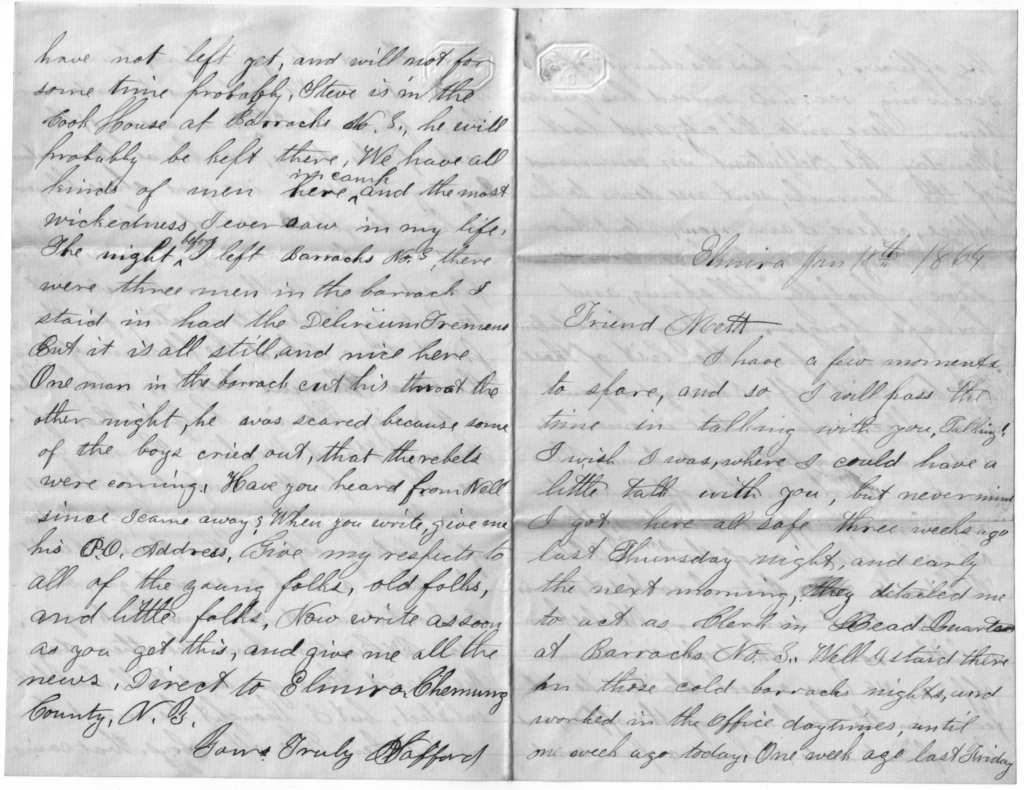 Elmira Jan 11th 1864
Friend Mett
I have a few moments
to spare, and so I will pass the
time in talking with you, Talking!
I wish I was, where I could have a
little talk with you, but never mind
I got here all safe three weeks ago
last Thursday night, and early
the next morning, they detailed me
to act as Clerk in Head Quarters
at Barracks No. 3. Well I staid there
in those cold barracks nights, and
worked in the office daytimes, until
one week ago today. One week ago last Friday
have not left yet, and will not for
some time probably, Steve is in the
Cook House at Barracks No. 3., he will
probably be kept there, We have all
kinds of men here in camp, and the most
wickedness, I ever saw in my life.
The night before I left Barracks No. 3, there
were three men in the barrack I
staid in had the Delirium Tremens
But it is all still, and nice here
One man in the barrack cut his throat the
other night, he was scared because some
of the boys cried out, that the rebels
were coming. Have you heard from Nell
since I came away? When you write, give me
his P.O. Address, Give my respects to
all of the young folks, old folks,
and little folks, Now write as soon
as you get this, and give me all the
news. Direct to Elmira, Chemung
County, N.Y.
Yours Truly Safford